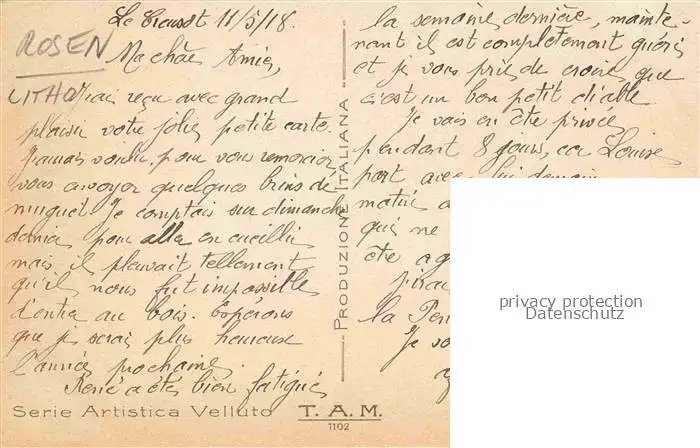 Le Creusot 11/5/18.
ROSEN
Ma chère Amie,
LITHO
J'ai reçu avec grand
plaisir votre jolie petite carte.
J'aurais voulu, pour vous remercier
vous envoyer quelques brins de
muguet. Je comptais sur dimanche
dernier pour aller en cueillir
mais il pleuvait tellement
qu'il nous fut impossible
d'entrer au bois. Espérons
que je serai plus heureuse
l'année prochaine.
René a été bien fatigué
la semaine dernière, mainte-
nant il est complètement guéri
et je vous prie de croire que
c'est un bon petit diable
Je vais en être privée
pendant 8 jours, car Louise
part avec lui demain
matin
qui ne
être
la
Je
PRODUZIONE ITALIANA
Serie Artistica Velluto
T. A. M.
1102
privacy protection
Datenschutz